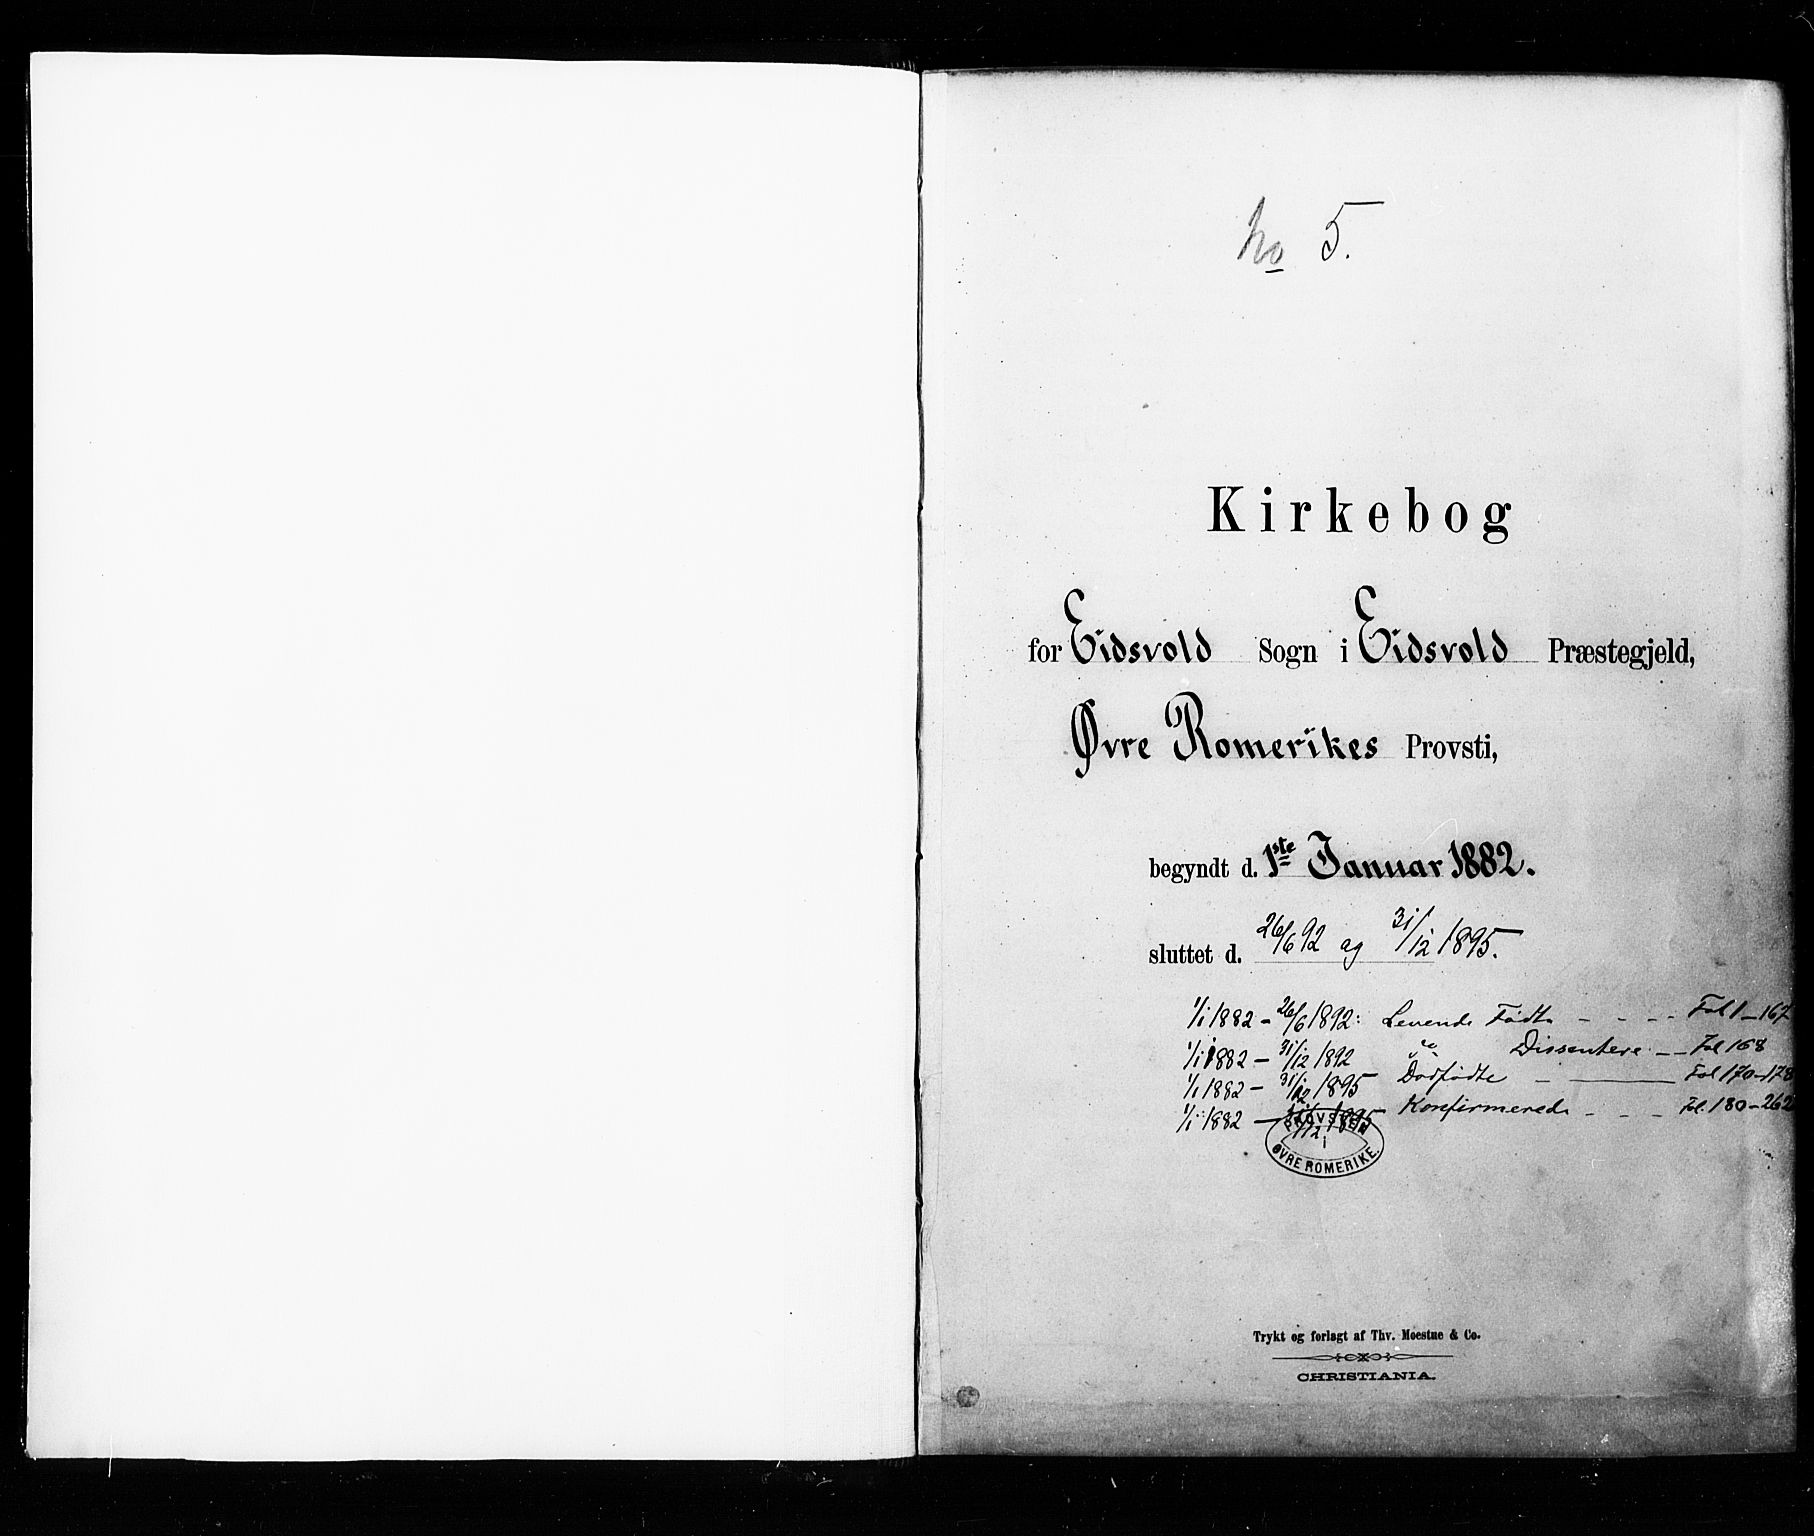 No 5.
Kirkebog
for Eidsvold Sogn i Eidsvold Præstegjeld,
Øvre Romerikes Provsti,
begyndt d. 1ste Januar 1882.
sluttet d. 26/6 92 og 31/12 1895.
1/1 1882 - 26/6 1892: Levende Fødte - - - - Fol 1-167
1/1 1882 - 31/12 1892 " Dissentere - - Fol 168
1/1 1882 - 31/12 1895 Dødfødte - - Fol 170-178
1/1 1882 - 31/12 1895 Konfirmerede - - - Fol. 180-262
PROVSTEN
i
ØVRE ROMERIKE.
Trykt og forlagt af Thv. Moestue & Co.
CHRISTIANIA.